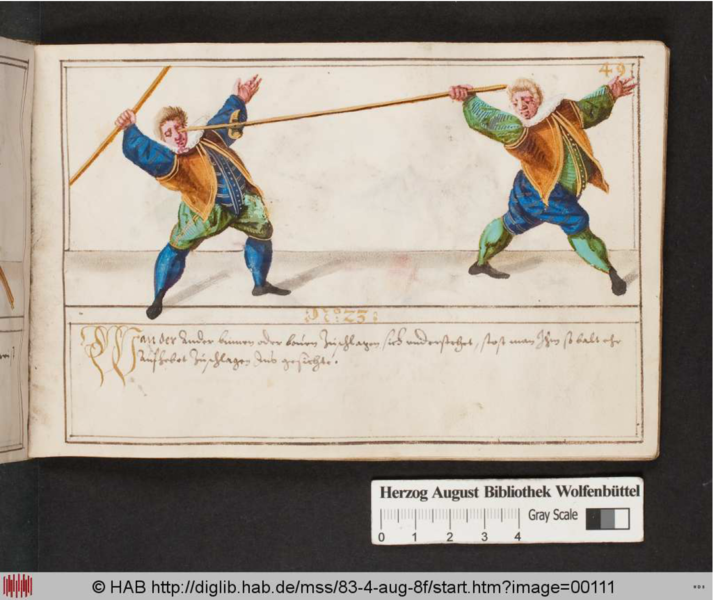 49
No: 23:
Wan der ander binnen oder boven Zuschlagen sich understehet, stost man Ihm so balt ehr
aufhebet Zuschlagen Ins gesichte.
Herzog August Bibliothek Wolfenbüttel
Gray Scale
0 1 2 3 4
© HAB http://diglib.hab.de/mss/83-4-aug-8f/start.htm?image=00111